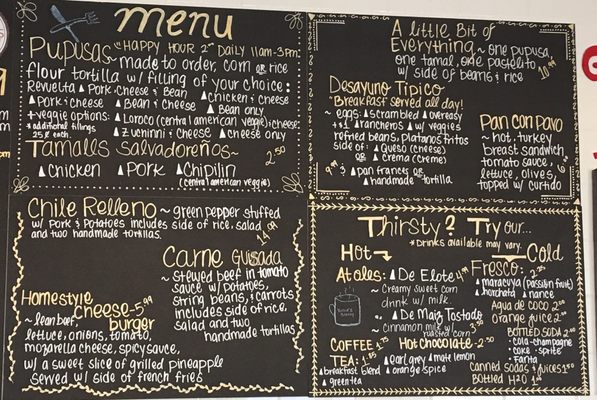 menu
Pupusas "HAPPY HOUR 2" DAILY 11am-3pm
~made to order, corn or rice
flour tortilla w/ filling of your choice:
Revuelta ▲ Pork·cheese & Bean ▲ chicken & cheese
▲ Pork & cheese ▲ Bean & cheese ▲ Bean only
+veggie options: ▲ Loroco (central american veggie) & cheese
*additional fillings
25¢ each. ▲ Zuchinni & cheese ▲ cheese only
Tamalls Salvadoreños~ 2.50
▲ chicken ▲ Pork ▲ Chipilin
(central american veggie)
A little Bit of
Everything ~ one pupusa,
one tamal, one pastelito
w/ side of beans & rice
10.99
Desayuno Tipico
"Breakfast served all day!"
~ eggs: ▲ scrambled ▲ overeasy
+1 ▲ rancheros ▲ w/ veggies
refried beans, platanos fritos
side of: ▲ Queso (cheese)
or ▲ crema (creme)
9.99 ▲ pan frances or
▲ handmade tortilla
Pan con Pavo
~ hot turkey
breast sandwich,
tomato sauce,
lettuce, olives,
topped w/ curtido
Chile Relleno ~ green pepper stuffed
w/ pork & potatoes includes side of rice, salad
and two handmade tortillas.
Carne Guisada
~ stewed beef in tomato
sauce w/ potatoes,
string beans, & carrots
includes side of rice,
salad and two
handmade tortillas
Homestyle
Cheese- 5.99
burger
~ lean beef,
lettuce, onions, tomato,
mozarella cheese, spicy sauce,
w/ a sweet slice of grilled pineapple
served w/ side of french fries
Thirsty? Try our...
*drinks available may vary.
Hot
Cold
Atoles: ▲ De Elote
~ Creamy sweet corn
drink w/ milk.
▲ De Maiz Tostado
~ cinnamon milk w/
roasted corn
COFFEE Hot chocolate - 2.50
TEA: ▲ earl grey ▲ matt lemon
▲ breakfast blend ▲ orange spice
▲ green tea
Fresco:
▲ maracuya (passion fruit)
▲ horchata ▲ nance
Agua de coco
orange juice
BOTTLED SODA
·cola-champagne
·coke ·sprite
·Fanta
canned sodas & juices
Bottled H2O